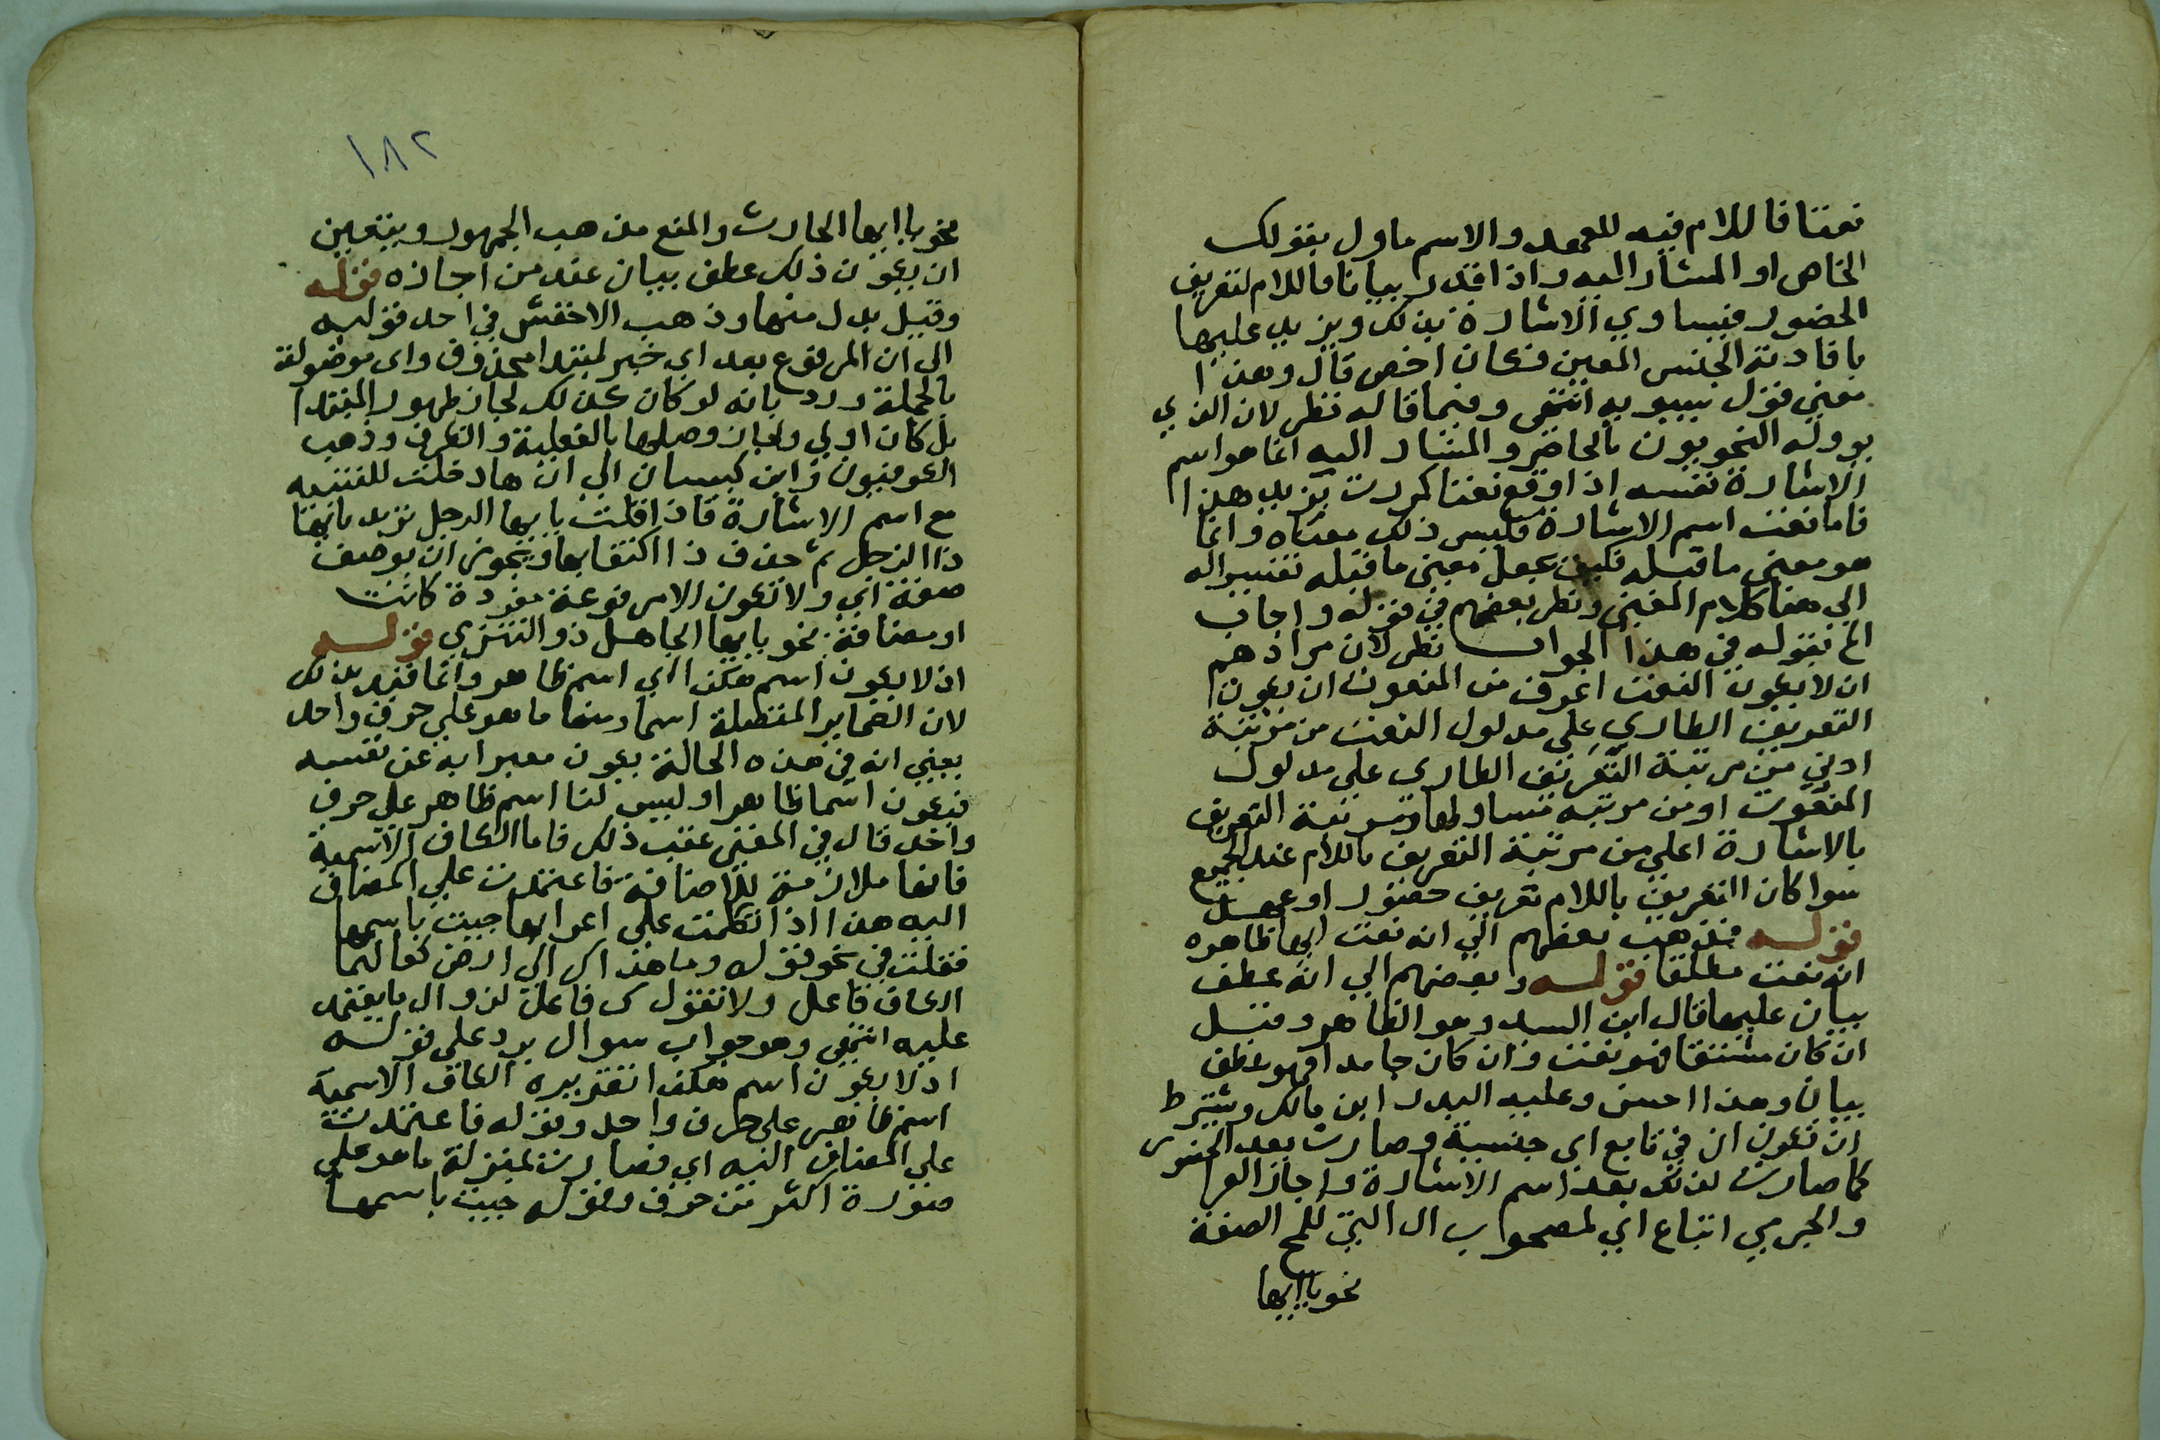 نعتا فاللام فيه للعهد والاسم ماول بقولك
الخاص او المشار اليه واذا قدر بيانا فاللام لتعريف
الحضور فيساوي الاشارة بذلك ويزيد عليها
بافادته الجنس المعين فكان اخص قال وهذا
معني قول سيبويه انتهي وفيما قاله نظر لان الذي
يووله النحويون بالحاضر والمشار اليه انما هو اسم
الاشارة نفسه اذا وقع نعتا كمررت بزيد هذا
فاما نعت اسم الاشارة فليس ذلك معناه وانما
هو معني ما قبله فكيف يجعل معني ما قبله تفسيرا له
الي هنا كلام المغني ونظر بعضهم في قوله واجاب
الخ بقوله في هذا الجواب نظر لان مرادهم
ان لا يكون النعت اعرف من المنعوت ان يكون
التعريف الطاري علي مدلول النعت من مرتبة
ادني من مرتبة التعريف الطاري علي مدلول
المنعوت او من مرتبه تساولها ومرتبة التعريف
بالاشارة اعلي من مرتبة التعريف باللام عند الجميع
سوا كان التعريف باللام تعريف حضور او عهد
قوله فذهب بعضهم الي انه نعت ايها ظاهره
انه نعت مطلقا قوله وبعضهم الي انه عطف
بيان عليها قال ابن السيد وهو الظاهر وقيل
ان كان مشتقا فهو نعت وان كان جامدا فهو عطف
بيان وهذا احسن وعليه البدر ابن مالك ويشترط
ان تكون ال في تابع اي جنسية وصارت بعد الحضور
كما صارت لذلك بعد اسم الاشارة واجاز الفرا
والجرمي اتباع اي لمصحوب ال التي للمح الصفة
نحو يا ايها
١٨٢
نحو يا ايها الحارث والمنع مذهب الجمهور ويتعين
ان يكون ذلك عطف بيان عند من اجازه قوله
وقيل بدل منها وذهب الاخفش في احد قوليه
الي ان المرفوع بعد اي خبر لمبتدا محذوف واي موصولة
بالجملة ورد بانه لو كان كذلك لجاز ظهور المبتدا
بل كان اولي ولجاز وصلها بالفعلية والظرف وذهب
الكوفيون وابن كيسان الي ان ها دخلت للتنبيه
مع اسم الاشارة فاذا قلت يا ايها الرجل تريد يا ايها
ذا الرجل ثم حذف ذا اكتفا بها ويجوز ان يوصف
صفة اي ولا تكون الا مرفوعة مفردة كانت
او مضافة نحو يا ايها الجاهل ذو التنزي قوله
اذ لا يكون اسم هكذا اي اسم ظاهر وانما قيد بذلك
لان الضماير المتصلة اسما ومنها ما هو علي حرف واحد
يعني انه في هذه الحالة يكون معبرا به عن نفسه
فيكون اسما ظاهرا وليس لنا اسم ظاهر علي حرف
واحد قال في المغني عقب ذلك فاما الكاف الاسمية
فانها ملازمة للاضافة فاعتمدت علي المضاف
اليه هذا اذا تكلمت علي اعرابها جيت باسمها
فقلت في نحو قوله وما هداك الي ارض كعالمها
الكاف فاعل ولا تقول ك فاعل لزوال ما يعتمد
عليه انتهي وهو جواب سوال يرد علي قوله
اذ لا يكون اسم هكذا تقريره الكاف الاسمية
اسم ظاهر علي حرف واحد وقوله فاعتمدت
علي المضاف اليه اي فصارت بمنزلة ما هو علي
صورة اكثر من حرف وقوله جيت باسمها